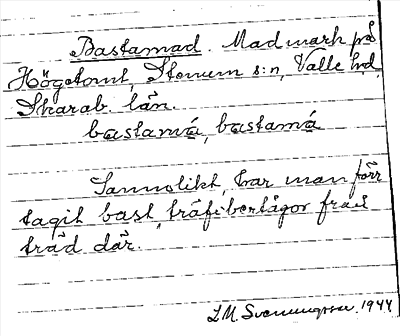 Bastamad. Madmark på
Högstomt, Stenum s:n, Valle hd,
Skarab. län.
bastamá, bastamá
Sannolikt har man förr
tagit bast, träfibertågor från
träd där.
L.M. Svenungsson. 1944